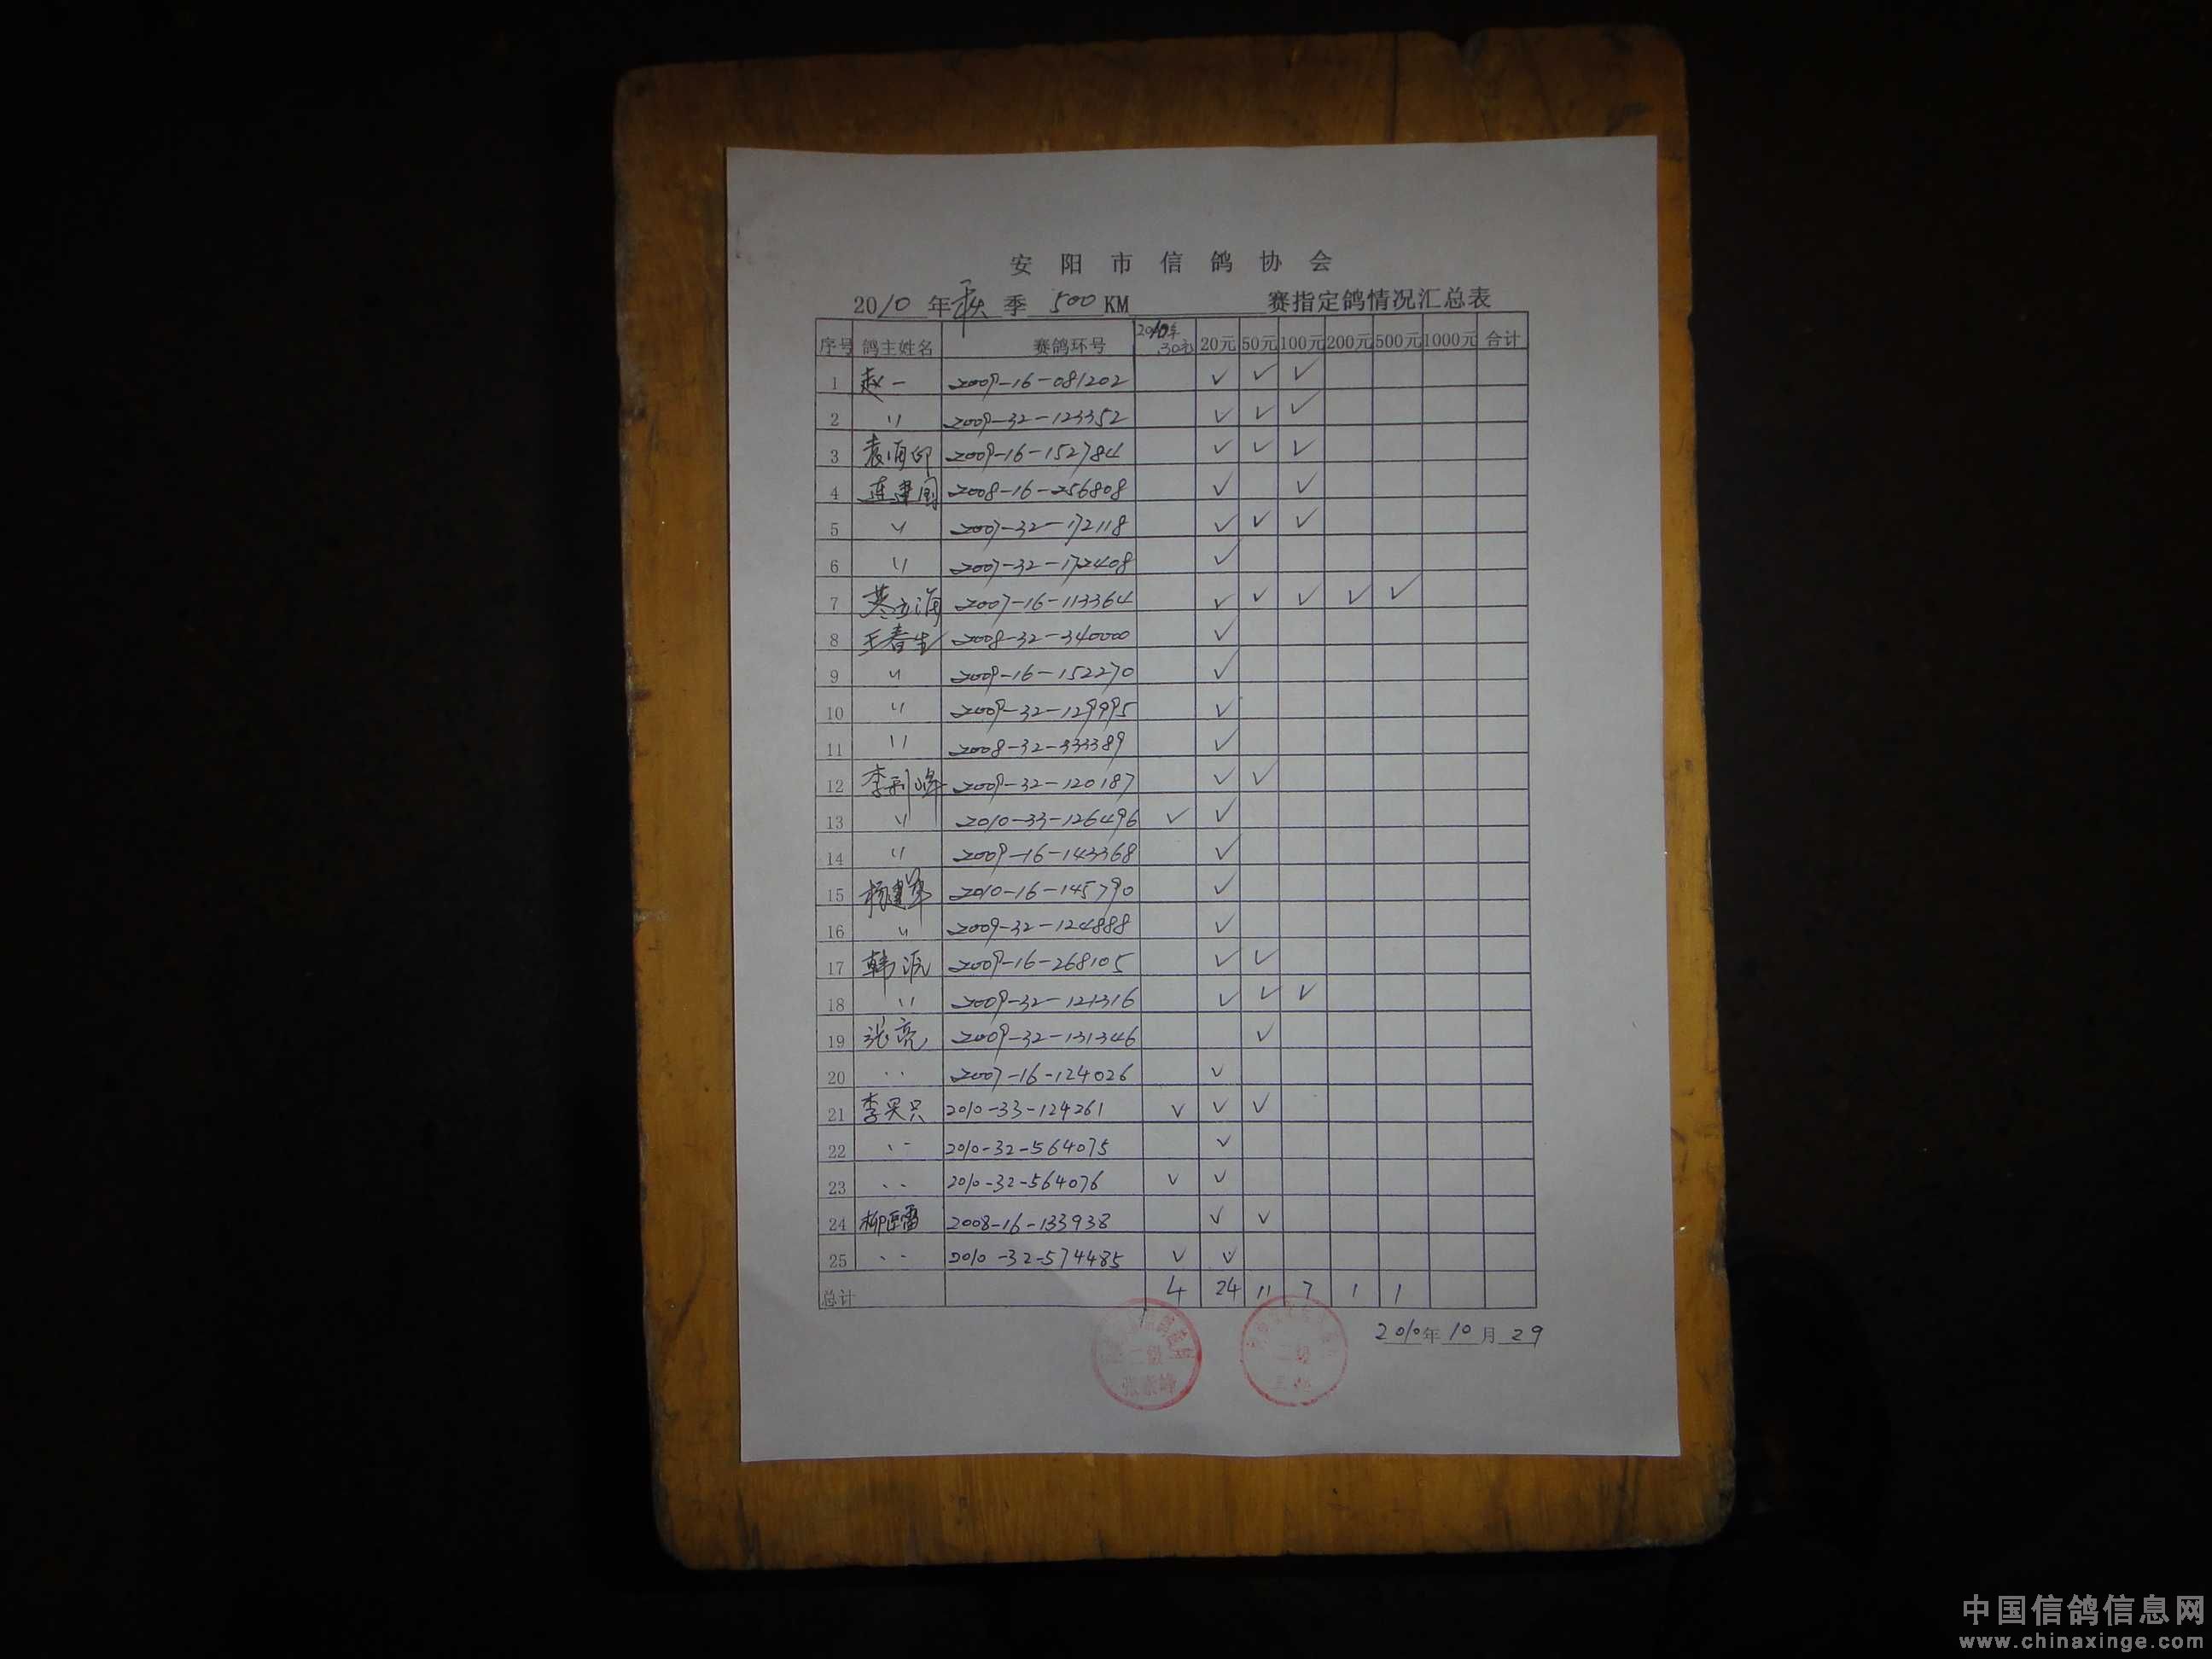 安阳市信鸽协会
2010年秋季 500KM 赛指定鸽情况汇总表
序号 鸽主姓名 赛鸽环号 2010年30元 20元 50元 100元 200元 500元 1000元 合计
1 赵一 2009-16-081202 ✓ ✓ ✓
2 〃 2009-32-123352 ✓ ✓ ✓
3 2009-16-152784 ✓ ✓ ✓
4 连建国 2008-16-256808 ✓ ✓
5 〃 2007-32-172118 ✓ ✓ ✓
6 〃 2007-32-172408 ✓
7 2007-16-113364 ✓ ✓ ✓ ✓ ✓
8 王春生 2008-32-340000 ✓
9 〃 2009-16-152270 ✓
10 〃 2009-32-129995 ✓
11 〃 2008-32-333389 ✓
12 李利峰 2009-32-120187 ✓ ✓
13 〃 2010-33-126496 ✓ ✓
14 〃 2009-16-143368 ✓
15 杨建军 2010-16-145790 ✓
16 〃 2009-32-124888 ✓
17 韩 2009-16-268105 ✓ ✓
18 〃 2009-32-121316 ✓ ✓ ✓
19 张亮 2009-32-131346 ✓
20 〃 2007-16-124026 ✓
21 李 2010-33-124261 ✓ ✓ ✓
22 〃 2010-32-564075 ✓
23 〃 2010-32-564076 ✓ ✓
24 柳 雷 2008-16-133938 ✓ ✓
25 〃 2010-32-574485 ✓ ✓
总计 4 24 11 7 1 1
2010年10月29
二级
二级
中国信鸽信息网
www.chinaxinge.com